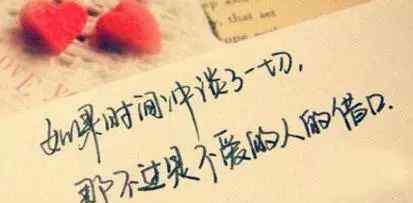 that set
如果时间冲淡了一切，
那不过是不爱的人的借口.